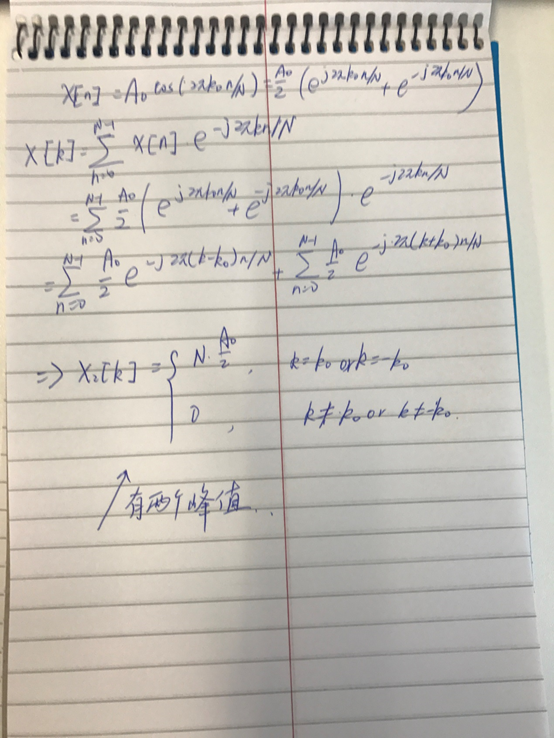 X[n] = A₀ cos(2πk₀n/N) = A₀/2 (e^{j2πk₀n/N} + e^{-j2πk₀n/N})
X[k] = ∑_{n=0}^{N-1} X[n] e^{-j2πkn/N}
= ∑_{n=0}^{N-1} A₀/2 (e^{j2πk₀n/N} + e^{-j2πk₀n/N}) · e^{-j2πkn/N}
= ∑_{n=0}^{N-1} A₀/2 e^{-j2π(k-k₀)n/N} + ∑_{n=0}^{N-1} A₀/2 e^{-j2π(k+k₀)n/N}
=> X₂[k] = { N · A₀/2 , k=k₀ or k=-k₀
0 , k≠k₀ or k≠-k₀.
有两个峰值..